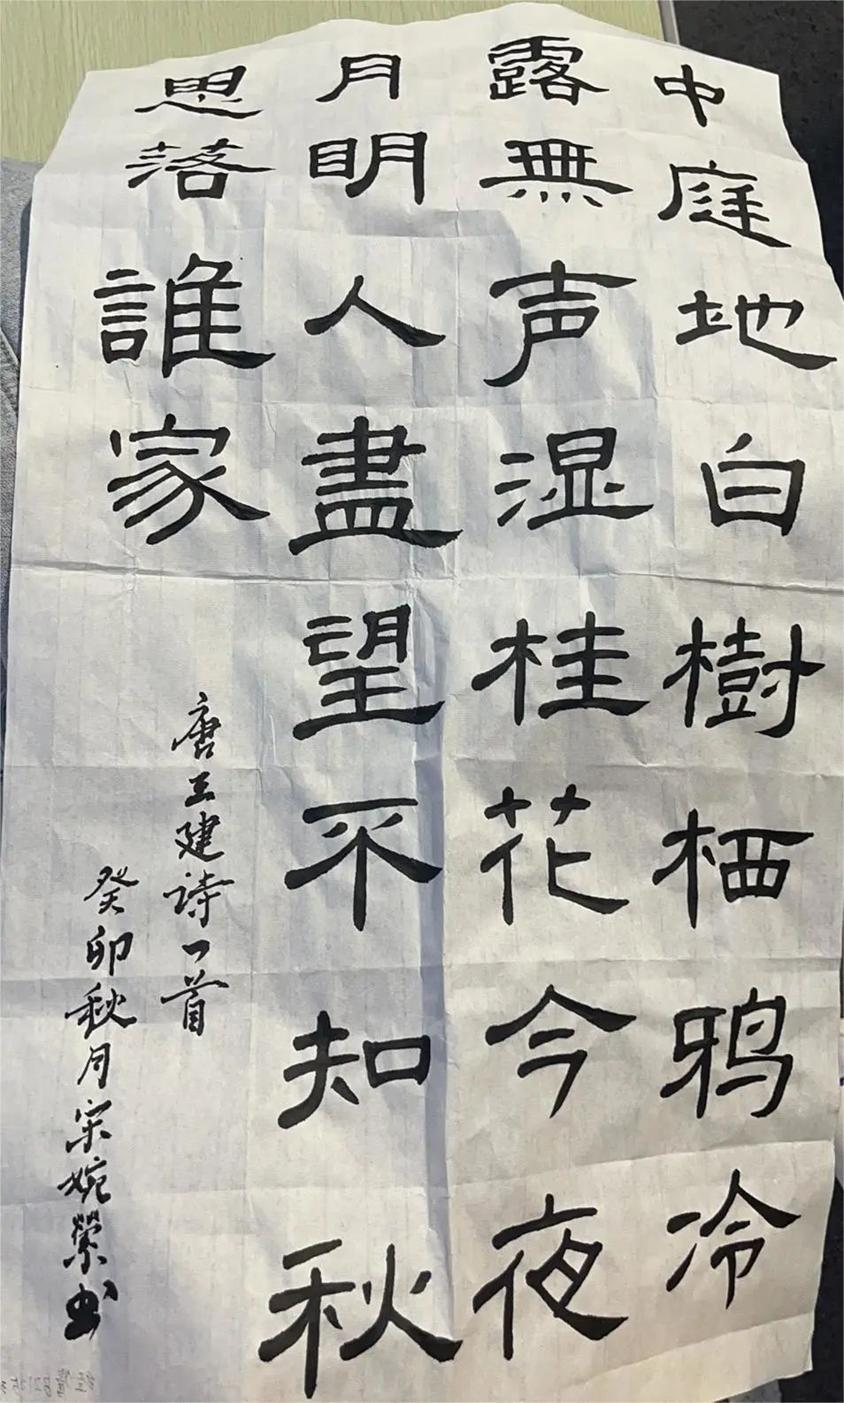 中庭地白樹栖鸦冷
露無声湿桂花今夜
月明人盡望不知秋
思落誰家
唐王建诗一首
癸卯秋月宋婉縈书